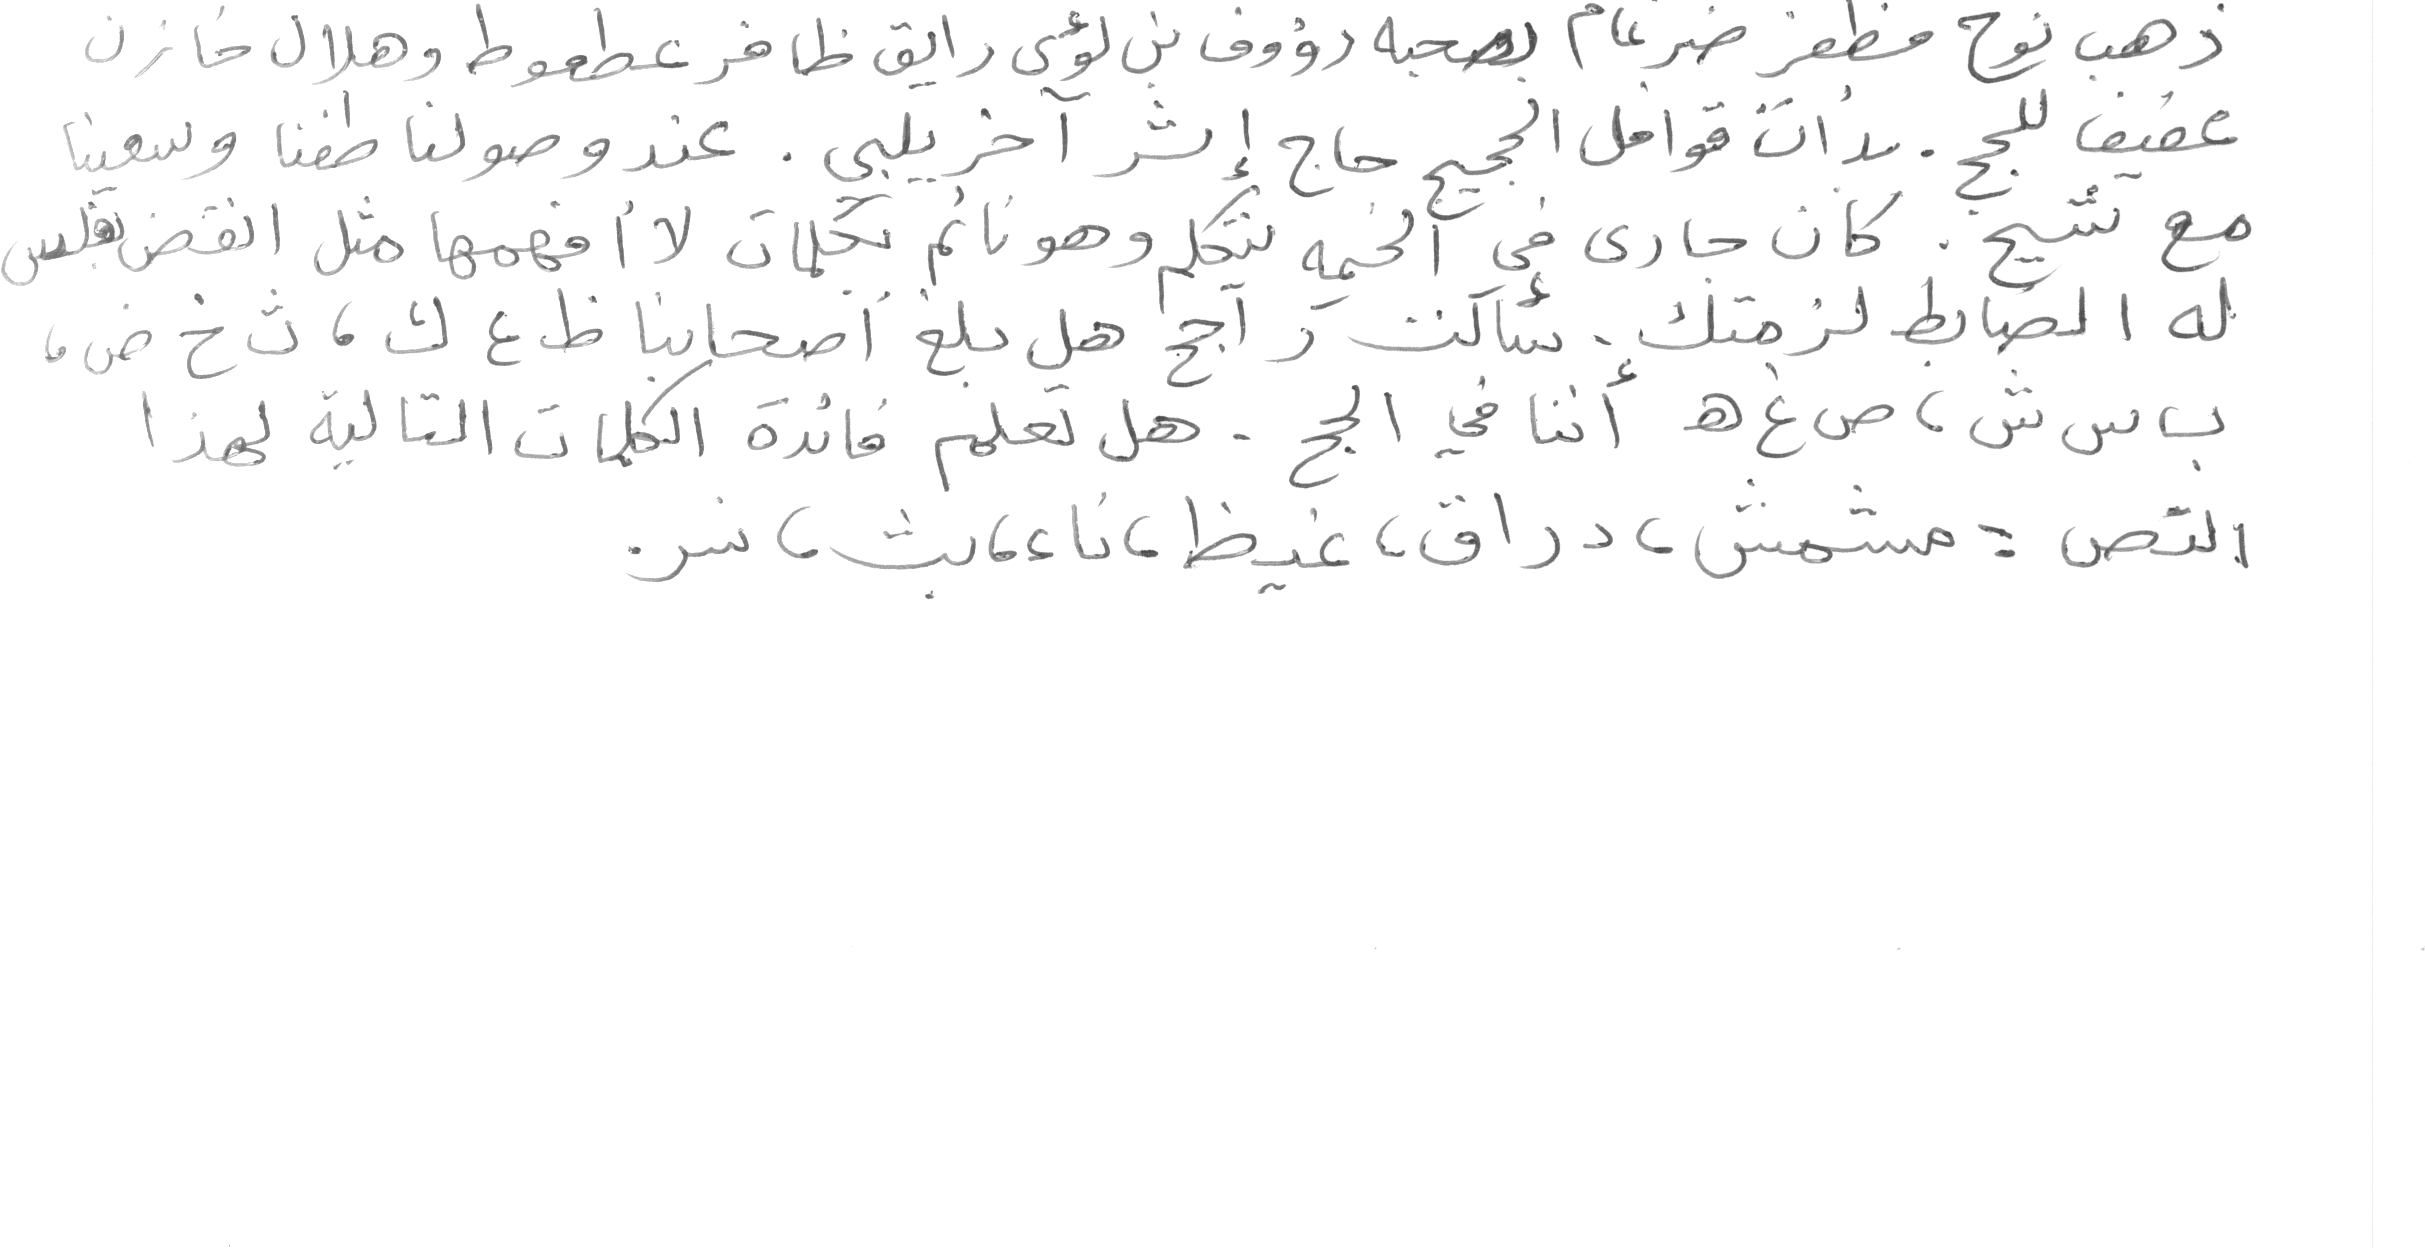 ذهب نوح مظفر ضرغام بصحبه رؤوف بن لؤى رايق ظافر عطعوط وهلال خازن
عفيف للحج . بدأت قوافل الحجيج حاج إثر آخر يلبى . عند وصولنا طفنا وسعينا
مع شيخ . كان جارى في الخيمه يتكلم وهو نائم بكلمات لا أفهمها مثل القض نفلس
له الضابط لزمتك . سألت راجح هل بلغ أصحابنا ظ ع ك ، ث خ ض ،
ب س ش ، ص غ ه أننا في الحج . هل تعلم فائدة الكلمات التالية لهذا
النص : مشمش ، دراق ، غيظ ، ناء ، بث ، نسر .